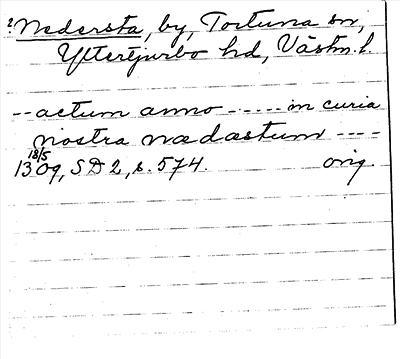 ?Nedersta, by, Tortuna sn,
Yttertjurbo hd, Västm. l.
-- actum anno ------ in curia
nostra nædastum ----
18/5
1309, SD 2, s. 574. orig